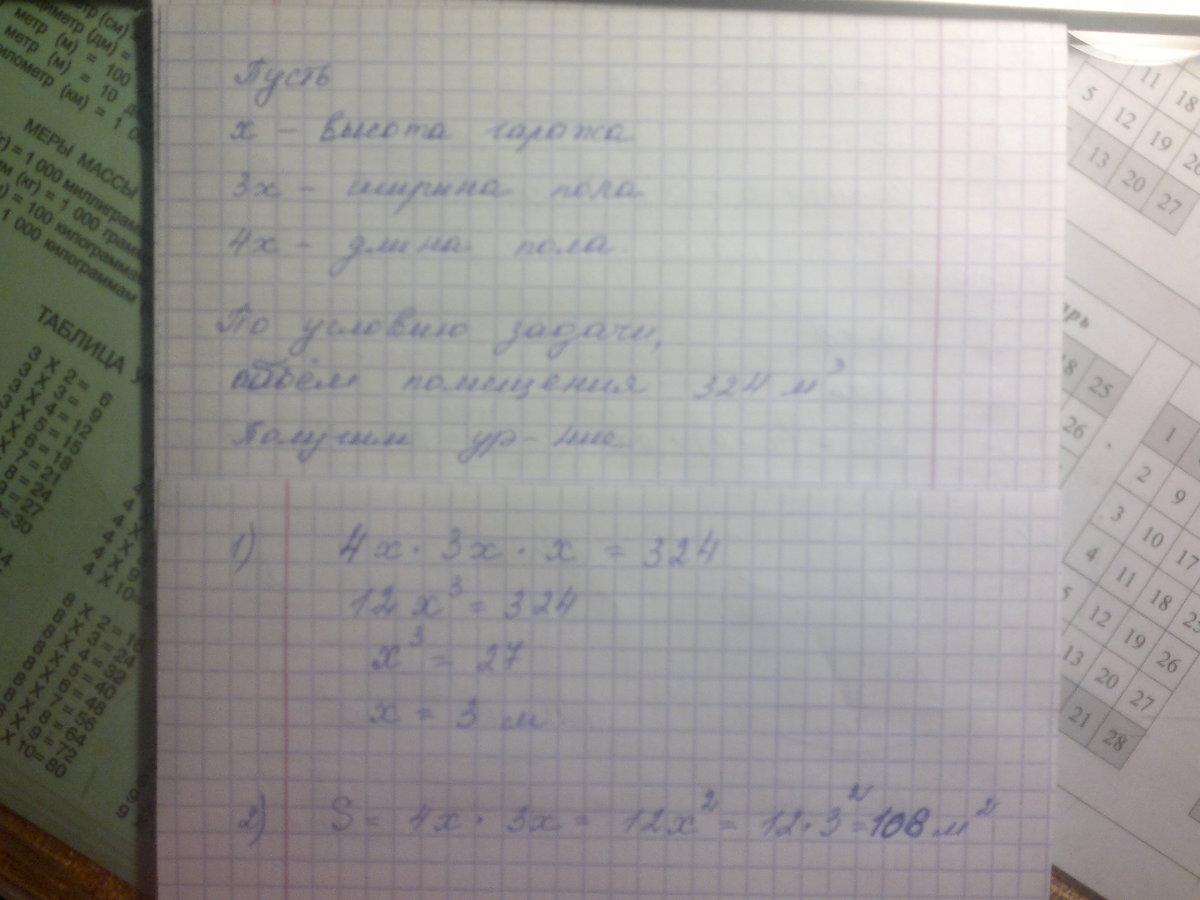 Пусть
х - высота гаража
3х - ширина пола
4х - длина пола.
По условию задачи,
объём помещения 324 м³.
Получим ур-ние
1) 4х · 3х · х = 324
12х³ = 324
х³ = 27
х = 3 м
2) S = 4х · 3х = 12х² = 12·3² = 108 м²
метр (м) = 100
метр (м) = 10
МЕРЫ МАССЫ
= 1 000 миллиграмм
(кг) = 1 000 грамм
= 100 килограммам
1 000 килограммам
ТАБЛИЦА
3 X 2 = 6
3 X 3 = 9
3 X 4 = 12
X 5 = 15
X 6 = 18
X 7 = 21
8 = 24
9 = 27
= 30
4 X 10=
8 X 2 = 16
8 X 3 = 24
8 X 4 = 32
8 X 5 = 40
8 X 6 = 48
8 X 7 = 56
8 X 8 = 64
X 9 = 72
X 10= 80
11 18
5 12 19 26
13 20 27
18 25
26
1
2 9
3 10 17
4 11 18 25
5 12 19 26
13 20 27
21 28